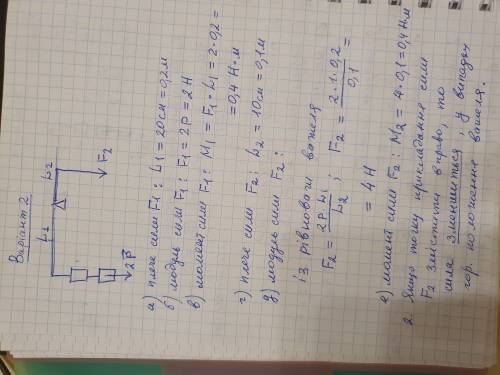 Варіант 2
L₁ L₂
F₂
2P
а) плече сили F₁: L₁ = 20см = 0,2м
б) модуль сили F₁: F₁ = 2P = 2Н
в) момент сили F₁: M₁ = F₁·L₁ = 2·0,2 =
= 0,4 Н·м
г) плече сили F₂: L₂ = 10см = 0,1м
д) модуль сили F₂:
із рівноваги важеля
F₂ = 2P L₁ / L₂ ; F₂ = 2·1·0,2 / 0,1 =
= 4Н
е) момент сили F₂: M₂ = 4·0,1 = 0,4 Н·м
2. Якщо точку прикладання сили
F₂ змістити вправо, то
сила зменшиться, у випадку
гор. положення важеля.